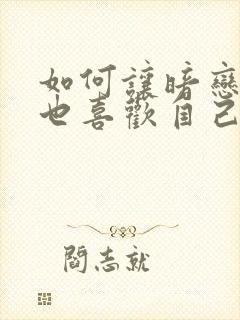 如何讓暗戀
也喜歡自己
閻志就